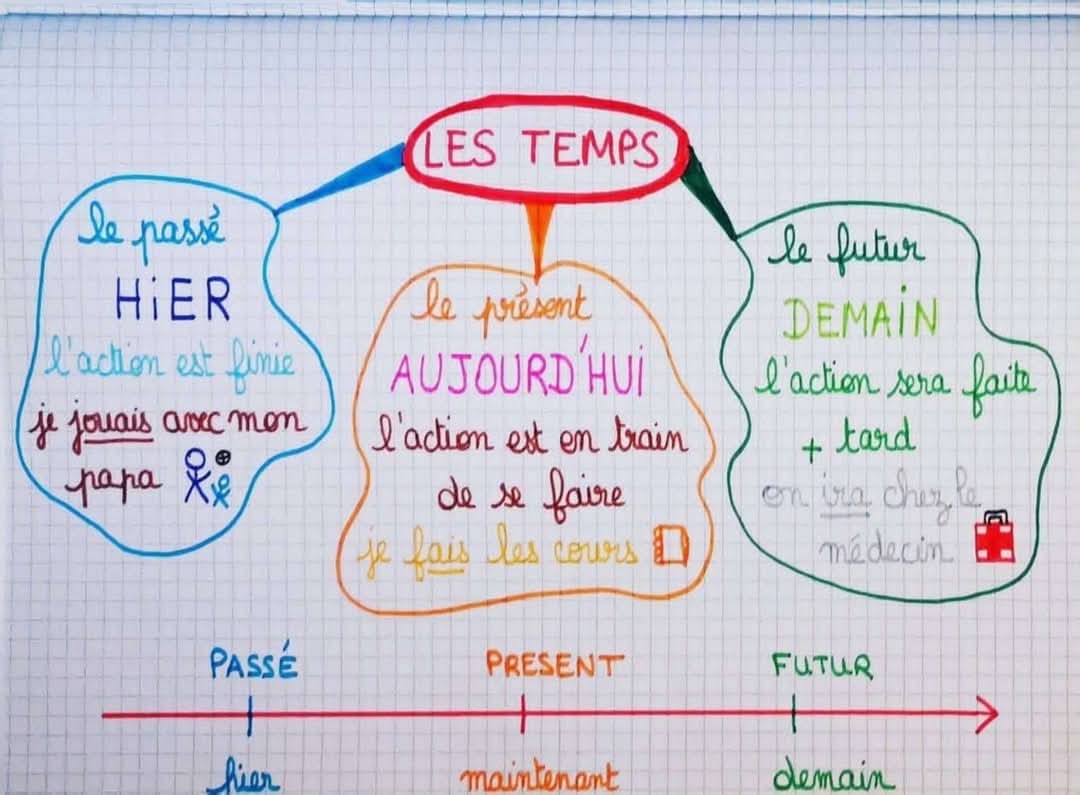 LES TEMPS
le passé
HiER
l'action est finie
je jouais avec mon
papa
le présent
AUJOURD'HUi
l'action est en train
de se faire
je fais les cours
le futur
DEMAiN
l'action sera faite
+ tard
on ira chez le
médecin
PASSÉ
PRESENT
FUTUR
hier
maintenant
demain